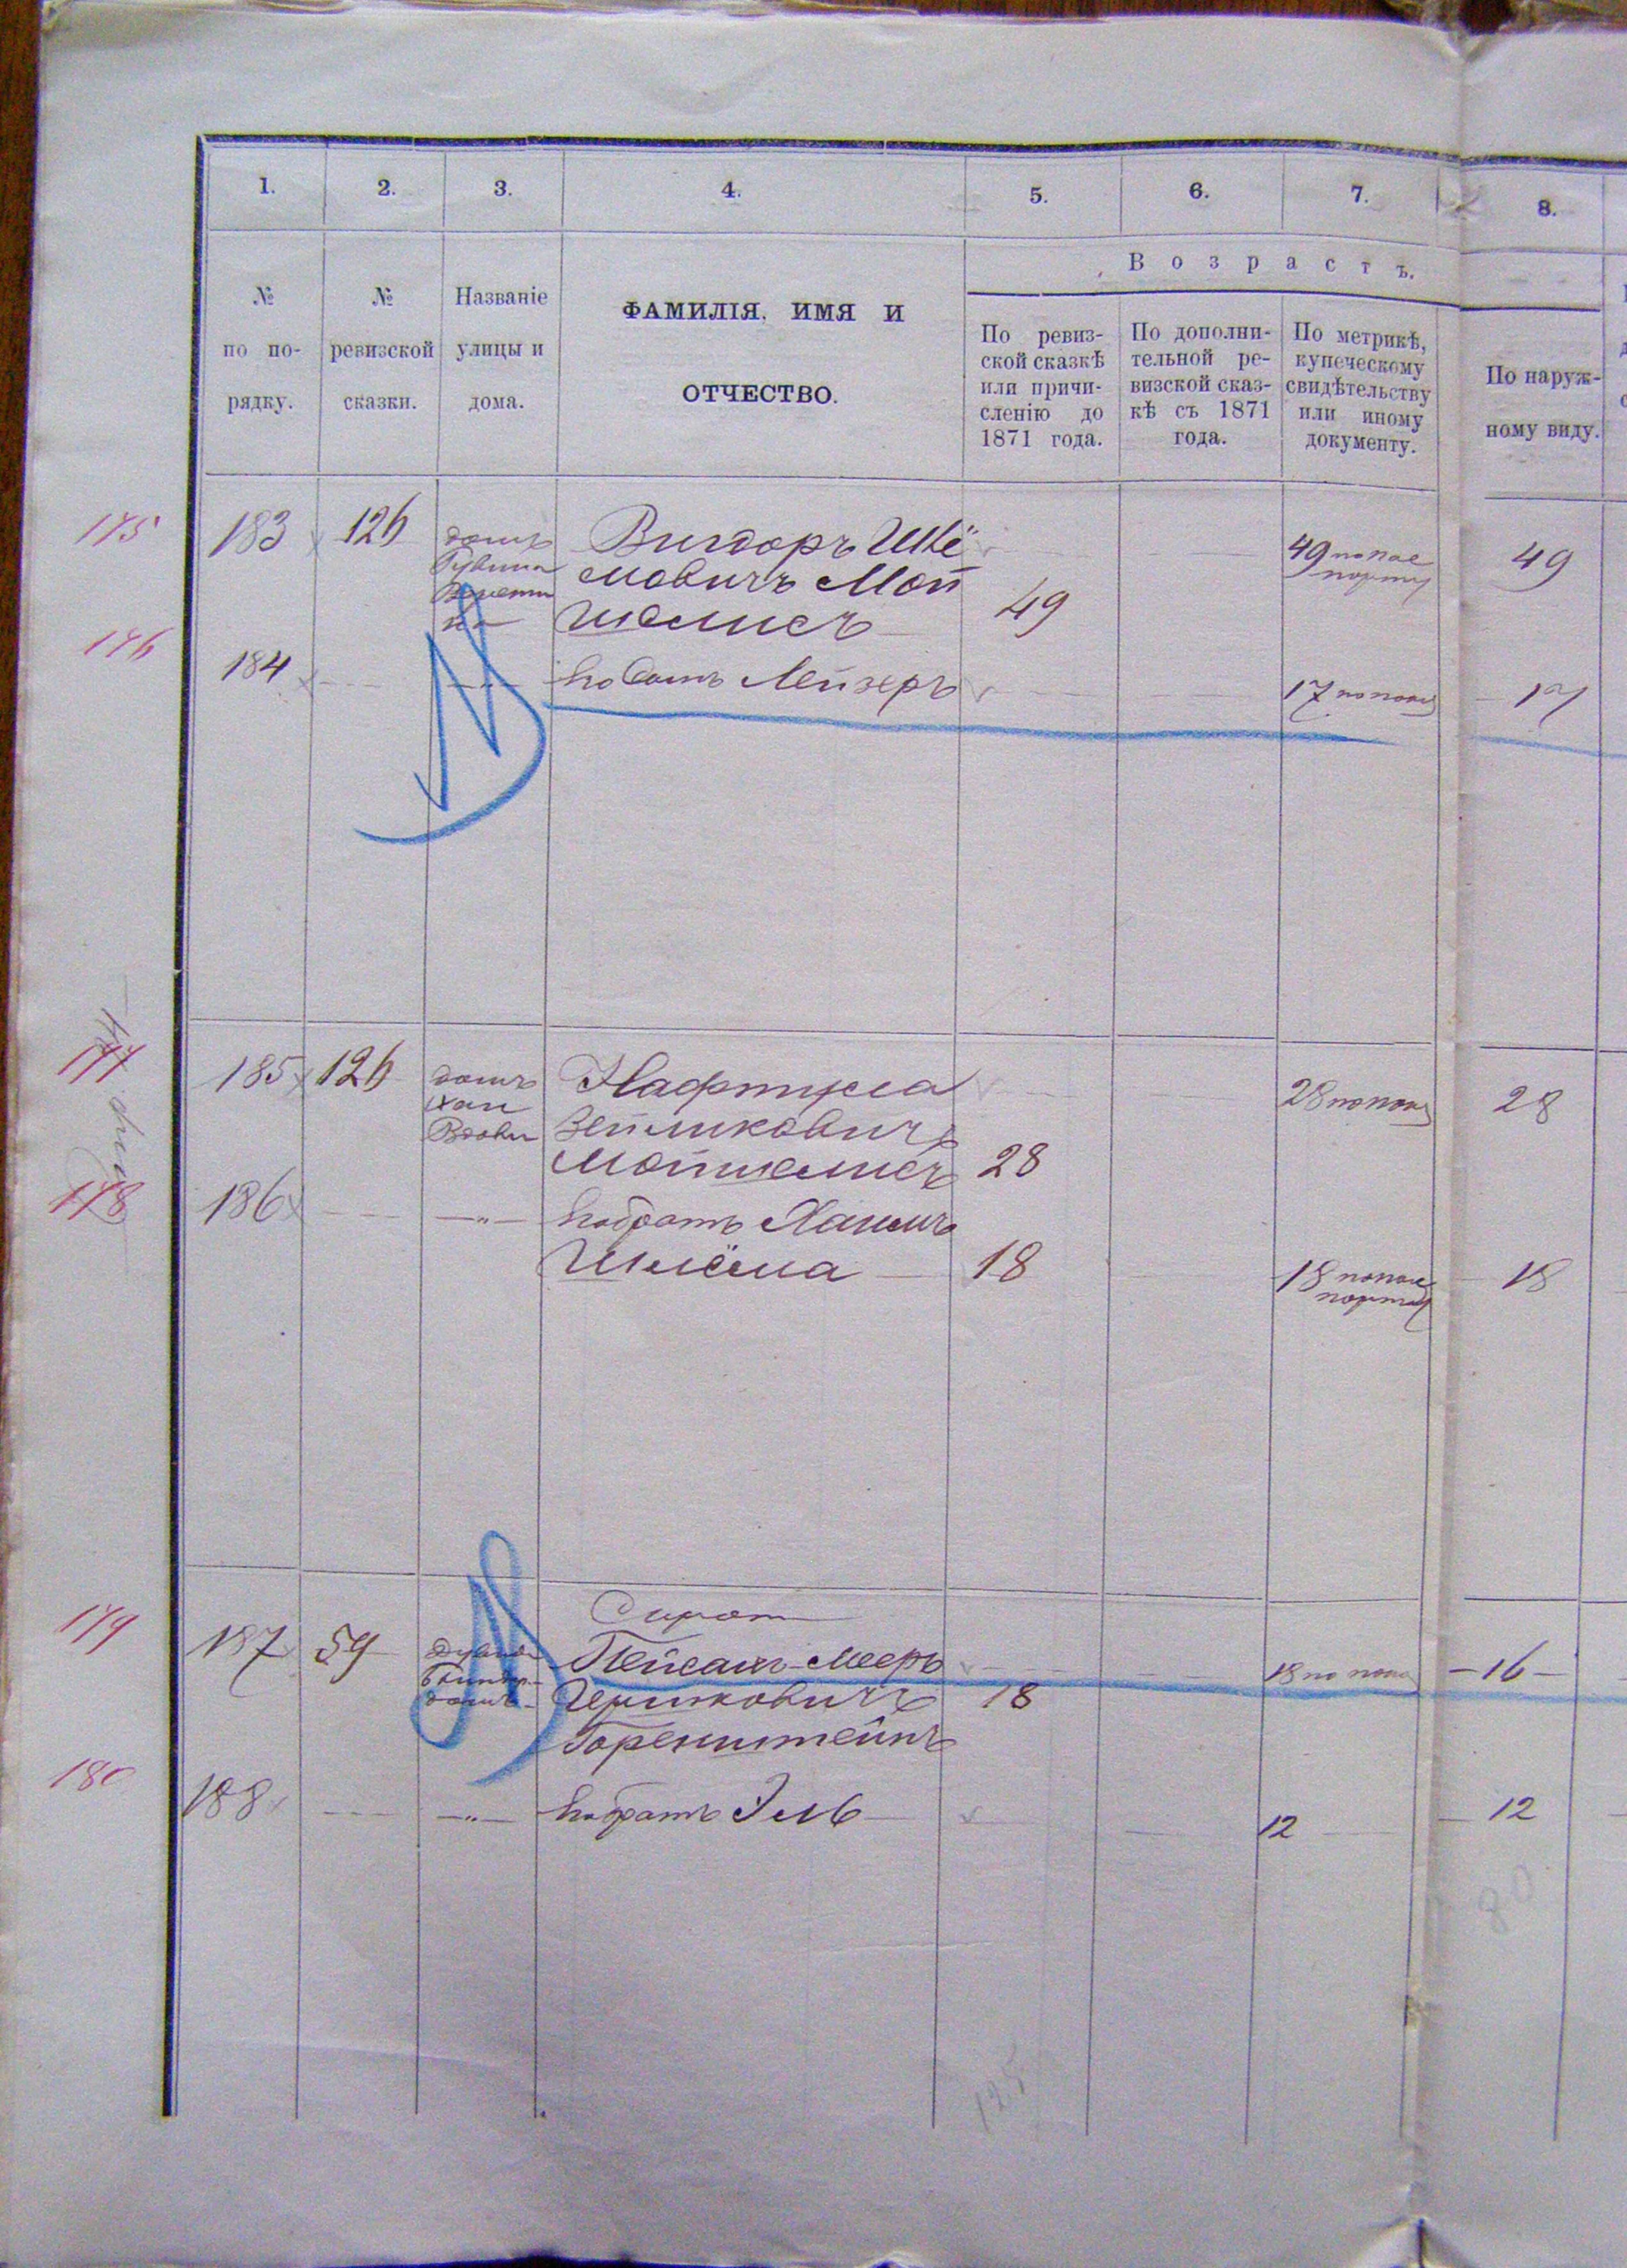 1. 2. 3. 4. 5. 6. 7. 8.
В о з р а с т ъ.
№
по по-
рядку.
№
ревизской
сказки.
Названіе
улицы и
дома.
ФАМИЛІЯ, ИМЯ И
ОТЧЕСТВО.
По ревиз-
ской сказкѣ
или причи-
сленію до
1871 года.
По дополни-
тельной ре-
визской сказ-
кѣ съ 1871
года.
По метрикѣ,
купеческому
свидѣтельству
или иному
документу.
По наруж-
ному виду.
175
183
126
домъ
Вигдоръ Шлё
мовичъ Мой
шелисъ
49
49 по пас
порту
49
176
184
Лейзеръ
17
17
177
185
126
домъ
Хаи
Вдовы
Нафтула
Зейликовичъ
Мойшелисъ
28
28
28
178
186
братъ Хаимъ
Шлёма
18
18
порту
18
179
187
59
домъ
Сирот
Пейсахъ-Мееръ
Гершковичъ
Горенштейнъ
18
18 по
16
180
188
братъ Эль
12
12
80
125